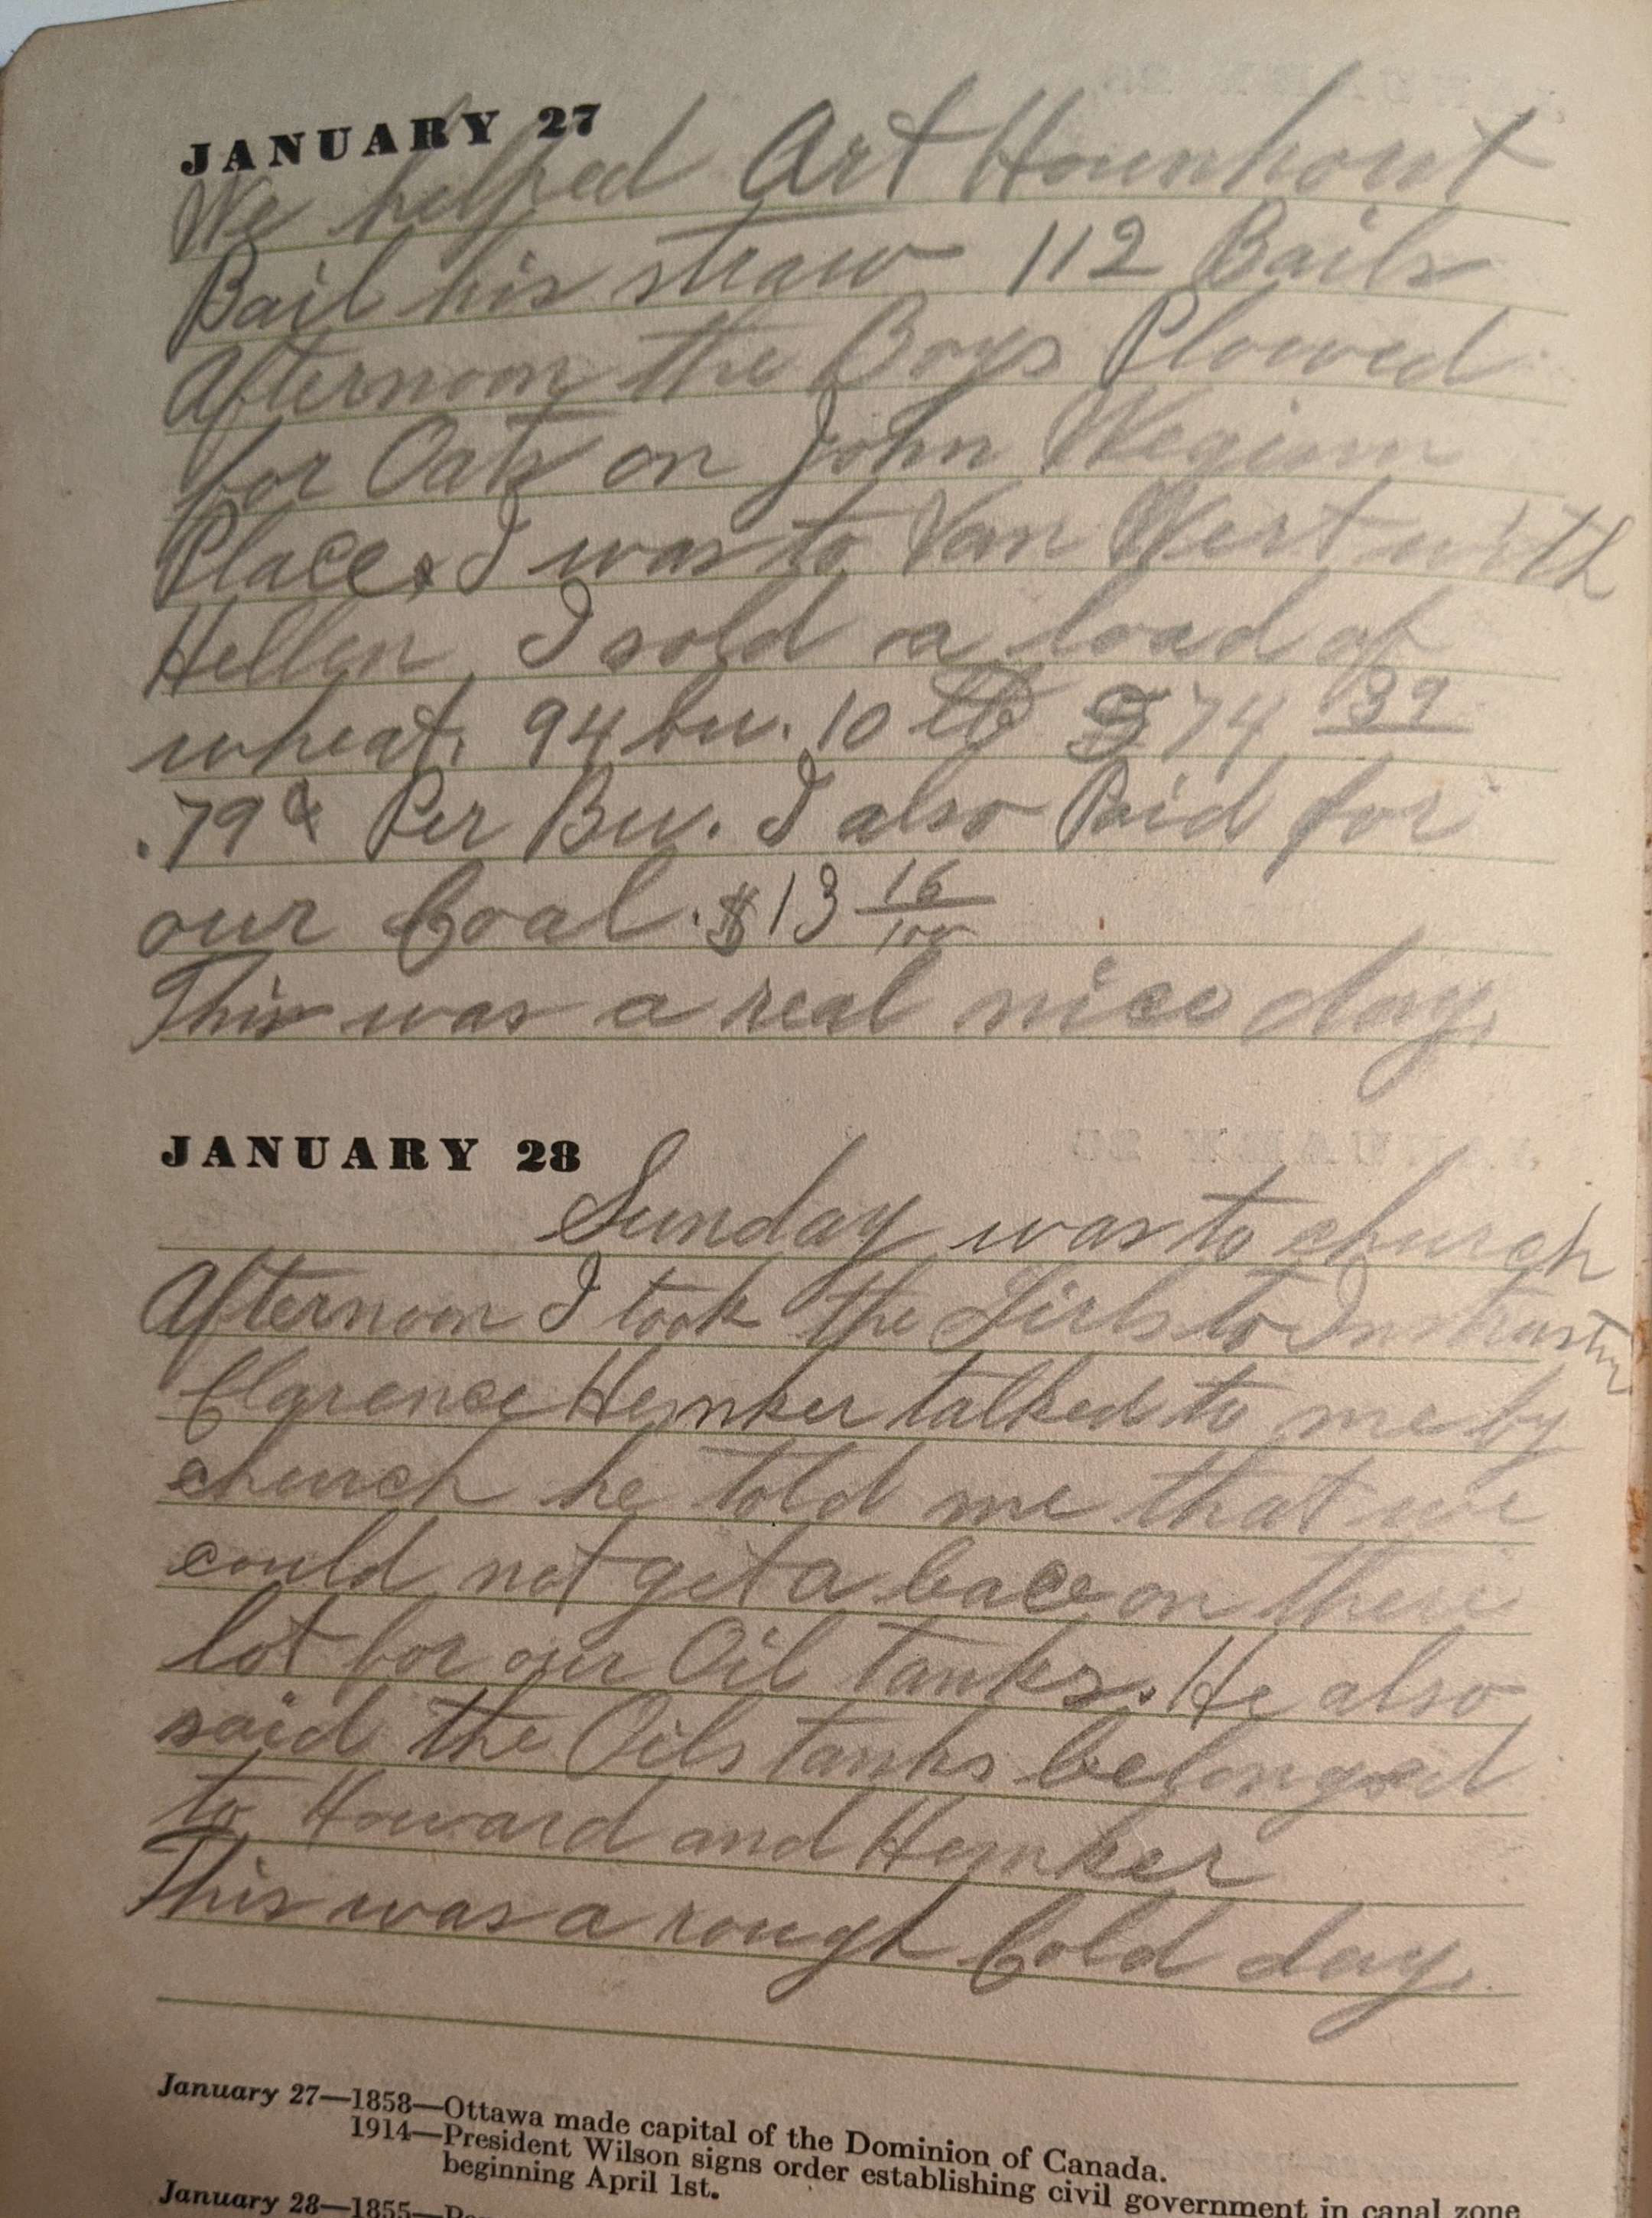 JANUARY 27
We helped Art Hounhout
Bail his straw 112 Bails
Afternoon the Boys Plowed
for Oats on John
Place. I was to Van Wert with
Hellen I sold a load of
wheat. 94 bu. 10 lb $74 39
.79¢ Per Bu. I also Paid for
our Coal. $13 16/100
This was a real nice day.
JANUARY 28
Sunday was to church
Afternoon I took the Girls to
Clarence Hemker talked to me by
church he told me that we
could not get a bace on there
lot for our Oil tanks. He also
said the Oils tanks belonged
to Howard and Hemker
This was a rough Cold day.
January 27—1858—Ottawa made capital of the Dominion of Canada.
1914—President Wilson signs order establishing civil government in canal zone
beginning April 1st.
January 28—1855—